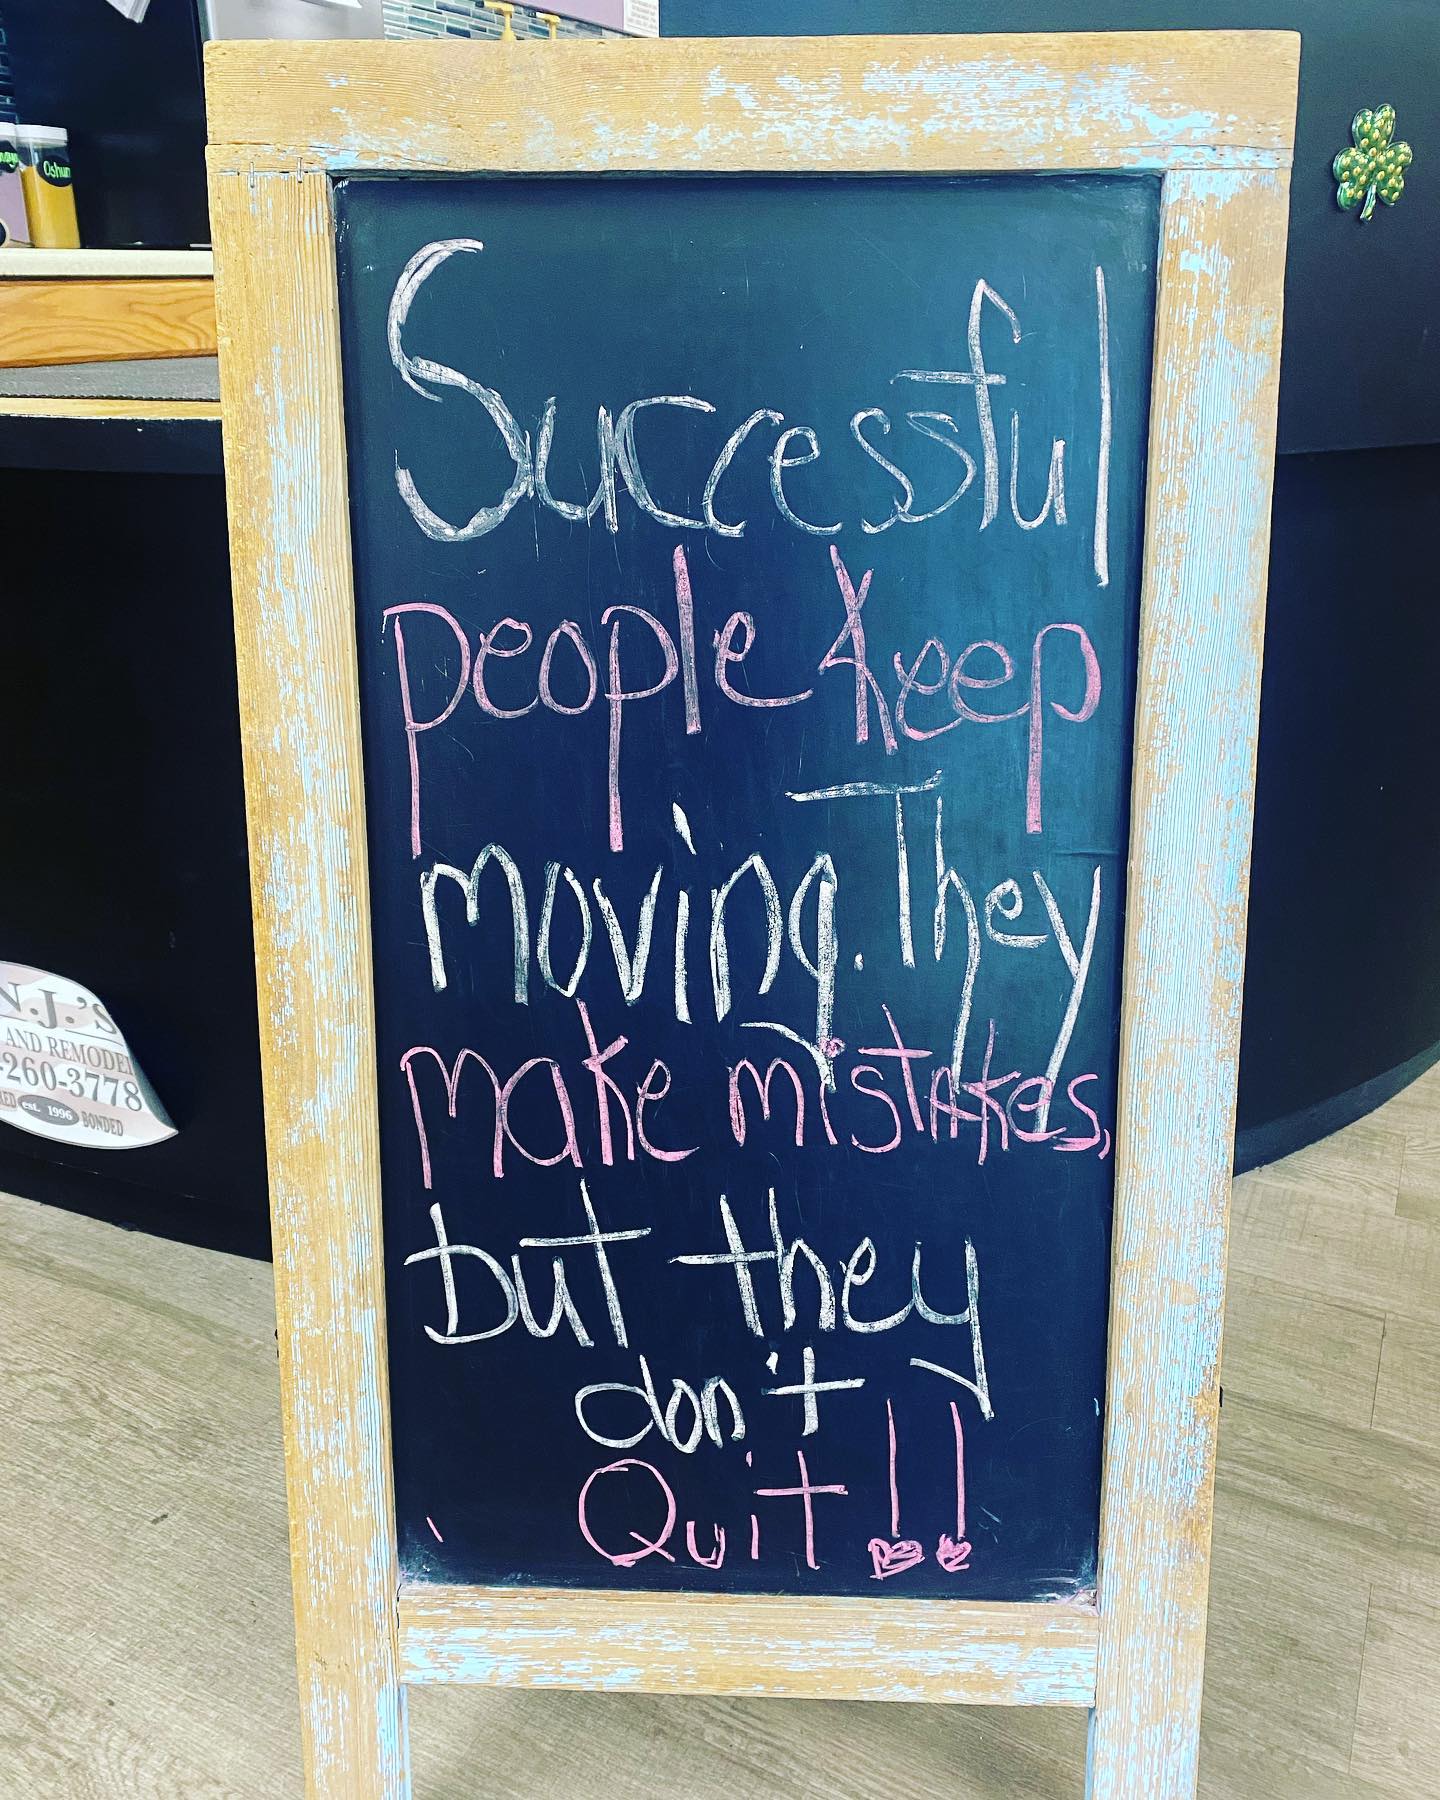 Oshun
Successful
people keep
moving. They
make mistakes,
but they
don't
Quit!!
N.J.'s
AND REMODE
-260-3778
est. 1996 BONDED